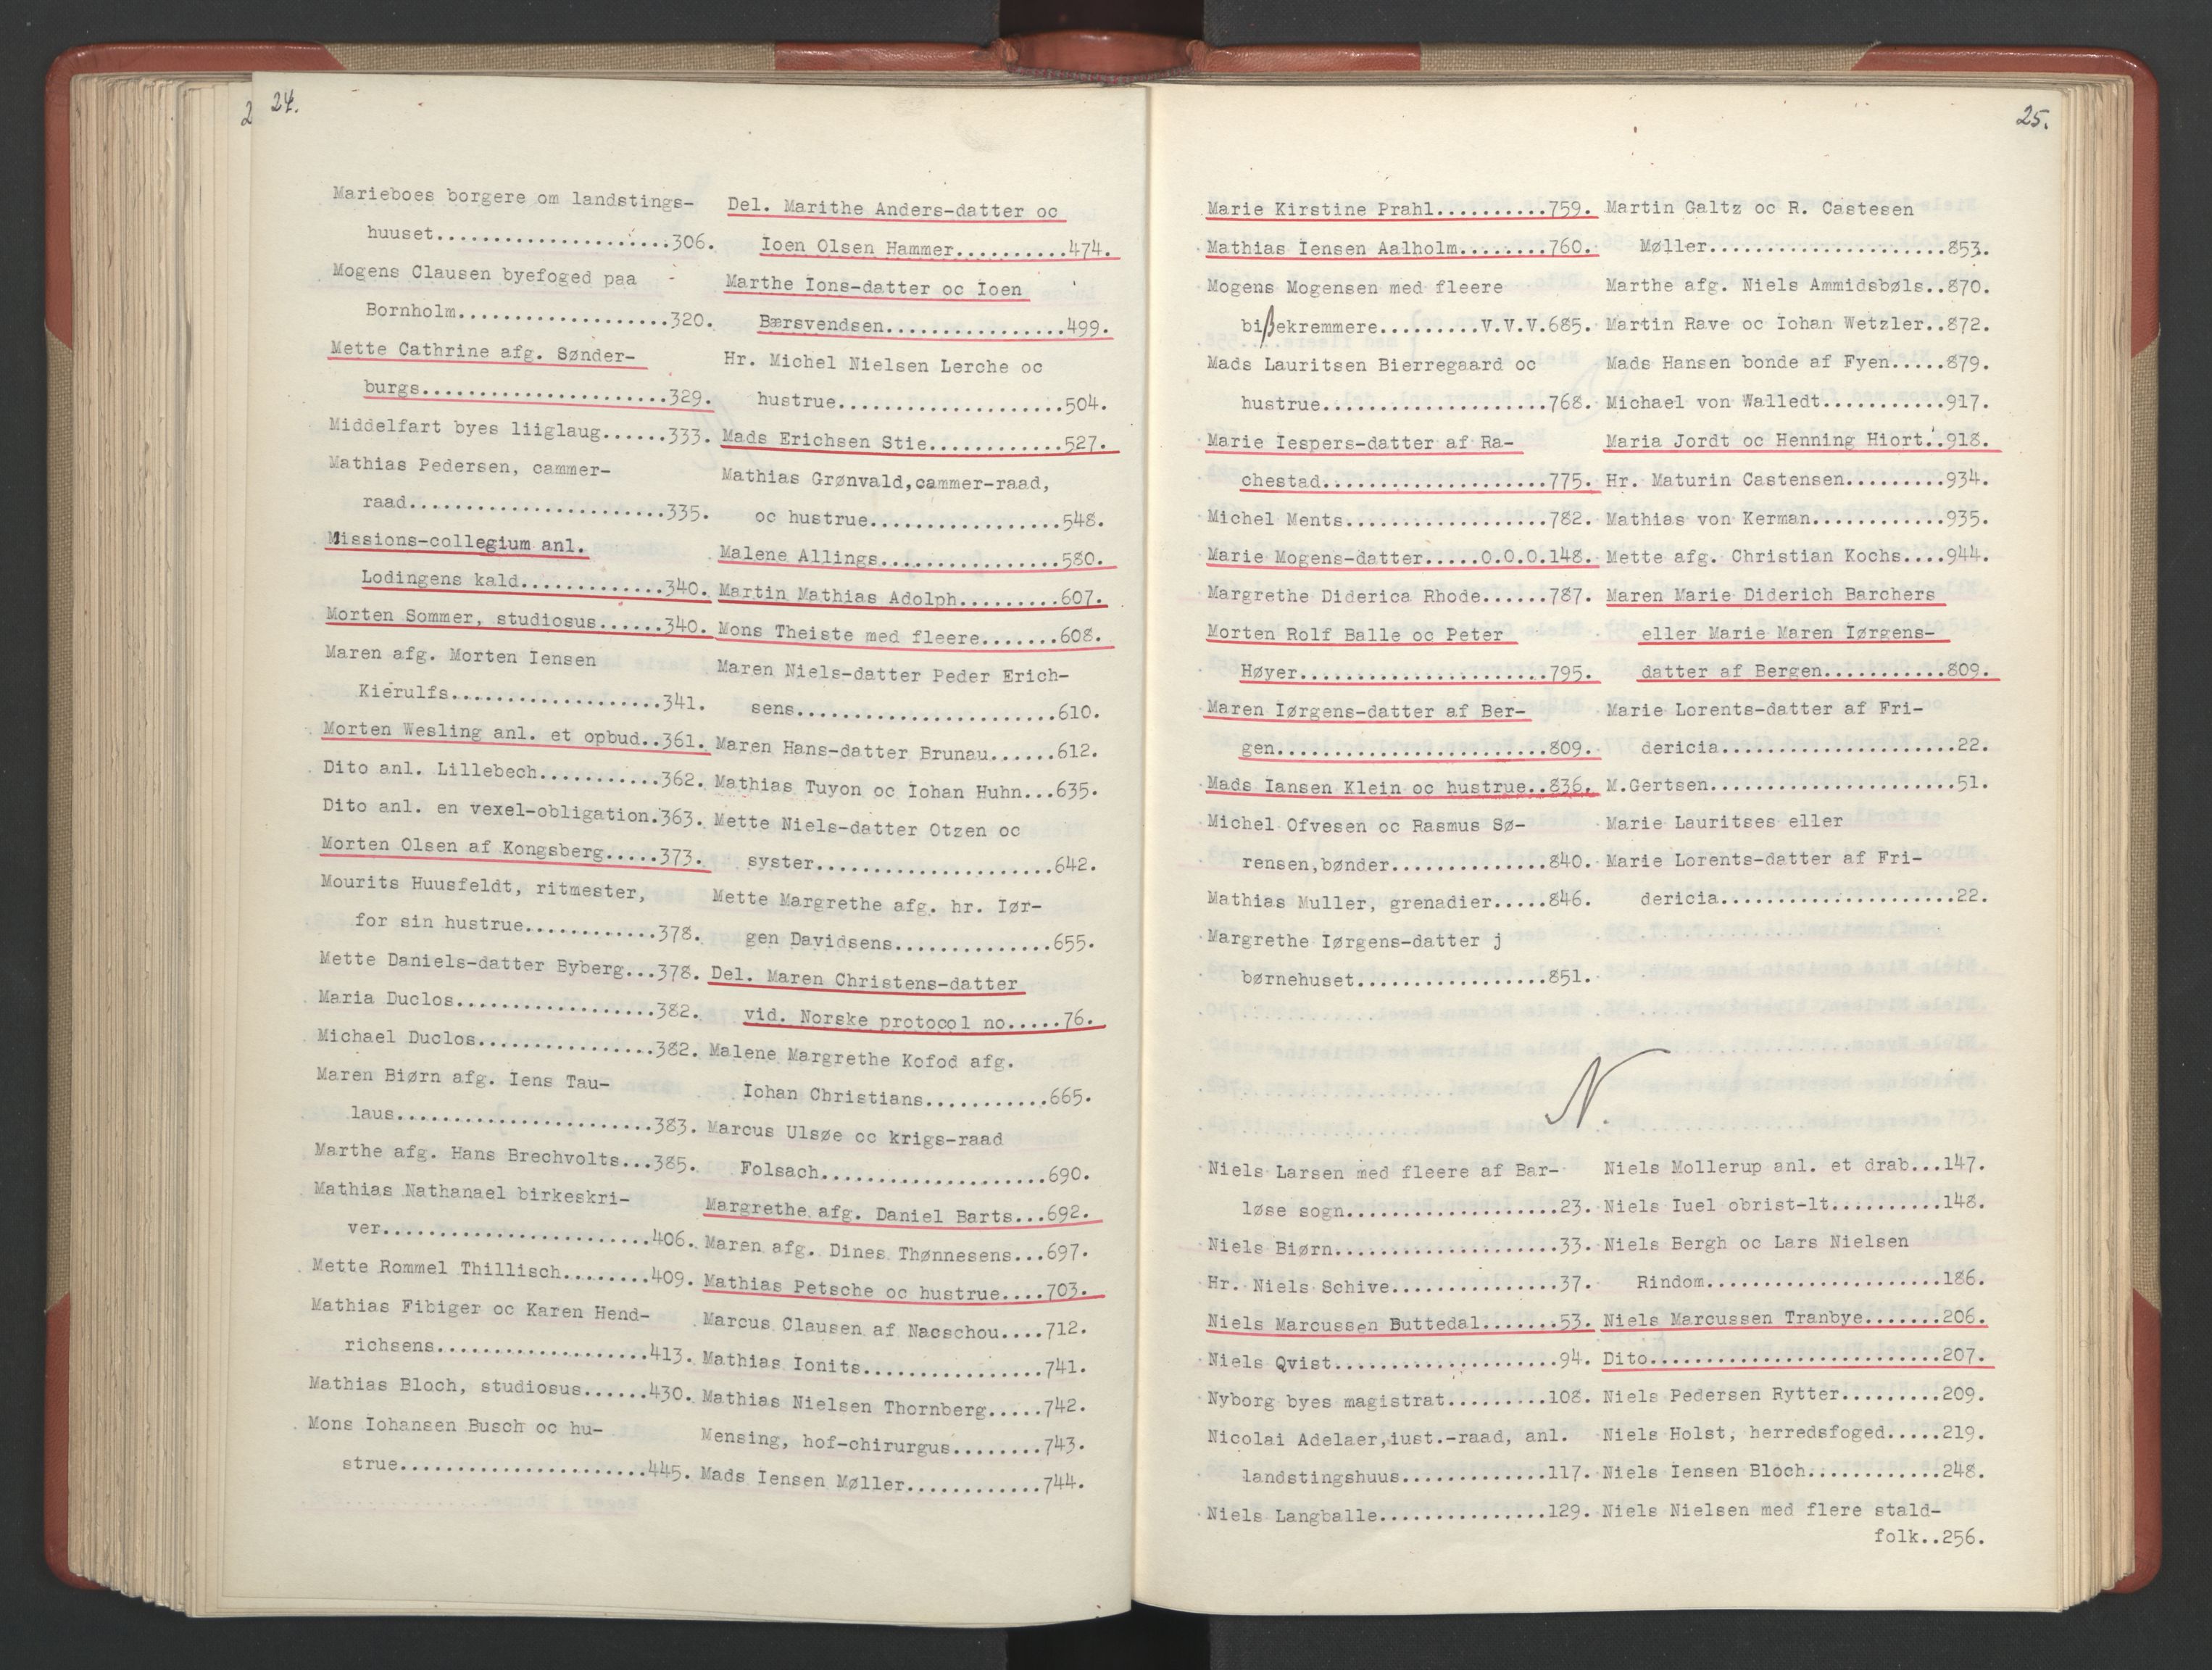 24.
Marieboes borgere om landstings-
huuset.....................306.
Mogens Clausen byefoged paa
Bornholm...................320.
Mette Cathrine afg. Sønder-
burgs......................329.
Middelfart byes liiglaug......333.
Mathias Pedersen, cammer-
raad.......................335.
Missions-collegium anl.
Lodingens kald.............340.
Morten Sommer, studiosus......340.
Maren afg. Morten Iensen
Kierulfs...................341.
Morten Wesling anl. et opbud..361.
Dito anl. Lillebech...........362.
Dito anl. en vexel-obligation.363.
Morten Olsen af Kongsberg.....373.
Mourits Huusfeldt, ritmester,
for sin hustrue............378.
Mette Daniels-datter Byberg...378.
Maria Duclos..................382.
Michael Duclos................382.
Maren Biørn afg. Iens Tau-
laus.......................383.
Marthe afg. Hans Brechvolts...385.
Mathias Nathanael birkeskri-
ver........................406.
Mette Rommel Thillisch........409.
Mathias Fibiger oc Karen Hend-
richsens...................413.
Mathias Bloch, studiosus......430.
Mons Iohansen Busch oc hu-
strue......................445.
Del. Marithe Anders-datter oc
Ioen Olsen Hammer..........474.
Marthe Ions-datter oc Ioen
Bærsvendsen................499.
Hr. Michel Nielsen Lerche oc
hustrue....................504.
Mads Erichsen Stie............527.
Mathias Grønvald,cammer-raad,
oc hustrue.................548.
Malene Allings................580.
Martin Mathias Adolph.........607.
Mons Theiste med fleere.......608.
Maren Niels-datter Peder Erich-
sens.......................610.
Maren Hans-datter Brunau......612.
Mathias Tuyon oc Iohan Huhn...635.
Mette Niels-datter Otzen oc
syster.....................642.
Mette Margrethe afg. hr. Iør-
gen Davidsens..............655.
Del. Maren Christens-datter
vid. Norske protocol no.....76.
Malene Margrethe Kofod afg.
Iohan Christians...........665.
Marcus Ulsøe oc krigs-raad
Folsach....................690.
Margrethe afg. Daniel Barts...692.
Maren afg. Dines Thønnesens...697.
Mathias Petsche oc hustrue....703.
Marcus Clausen af Nacschou....712.
Mathias Ionits................741.
Mathias Nielsen Thornberg.....742.
Mensing, hof-chirurgus........743.
Mads Iensen Møller............744.
25.
Marie Kirstine Prahl..........759.
Mathias Iensen Aalholm........760.
Mogens Mogensen med fleere
bißekremmere.........V.V.V.685.
Mads Lauritsen Bierregaard oc
hustrue....................768.
Marie Iespers-datter af Ra-
chestad....................775.
Michel Ments..................782.
Marie Mogens-datter.....O.O.O.148.
Margrethe Diderica Rhode......787.
Morten Rolf Balle oc Peter
Høyer......................795.
Maren Iørgens-datter af Ber-
gen........................809.
Mads Iansen Klein oc hustrue..836.
Michel Ofvesen oc Rasmus Sø-
rensen,bønder..............840.
Mathias Muller, grenadier.....846.
Margrethe Iørgens-datter j
børnehuset.................851.
Martin Galtz oc R. Castesen
Møller.....................853.
Marthe afg. Niels Ammidsbøls..870.
Martin Rave oc Iohan Wetzler..872.
Mads Hansen bonde af Fyen.....879.
Michael von Walledt...........917.
Maria Jordt oc Henning Hiort..918.
Hr. Maturin Castensen.........934.
Mathias von Kerman............935.
Mette afg. Christian Kochs....944.
Maren Marie Diderich Barchers
eller Marie Maren Iørgens-
datter af Bergen...........809.
Marie Lorents-datter af Fri-
dericia.....................22.
M.Gertsen......................51.
Marie Lauritses eller
Marie Lorents-datter af Fri-
dericia.....................22.
N.
Niels Larsen med fleere af Bar-
løse sogn...................23.
Niels Biørn....................33.
Hr. Niels Schive...............37.
Niels Marcussen Buttedal.......53.
Niels Qvist....................94.
Nyborg byes magistrat.........108.
Nicolai Adelaer,iust.-raad, anl.
landstingshuus.............117.
Niels Langballe...............129.
Niels Mollerup anl. et drab...147.
Niels Iuel obrist-lt..........148.
Niels Bergh oc Lars Nielsen
Rindom.....................186.
Niels Marcussen Tranbye.......206.
Dito..........................207.
Niels Pedersen Rytter.........209.
Niels Holst, herredsfoged.....219.
Niels Iensen Bloch............248.
Niels Nielsen med flere stald-
folk..256.